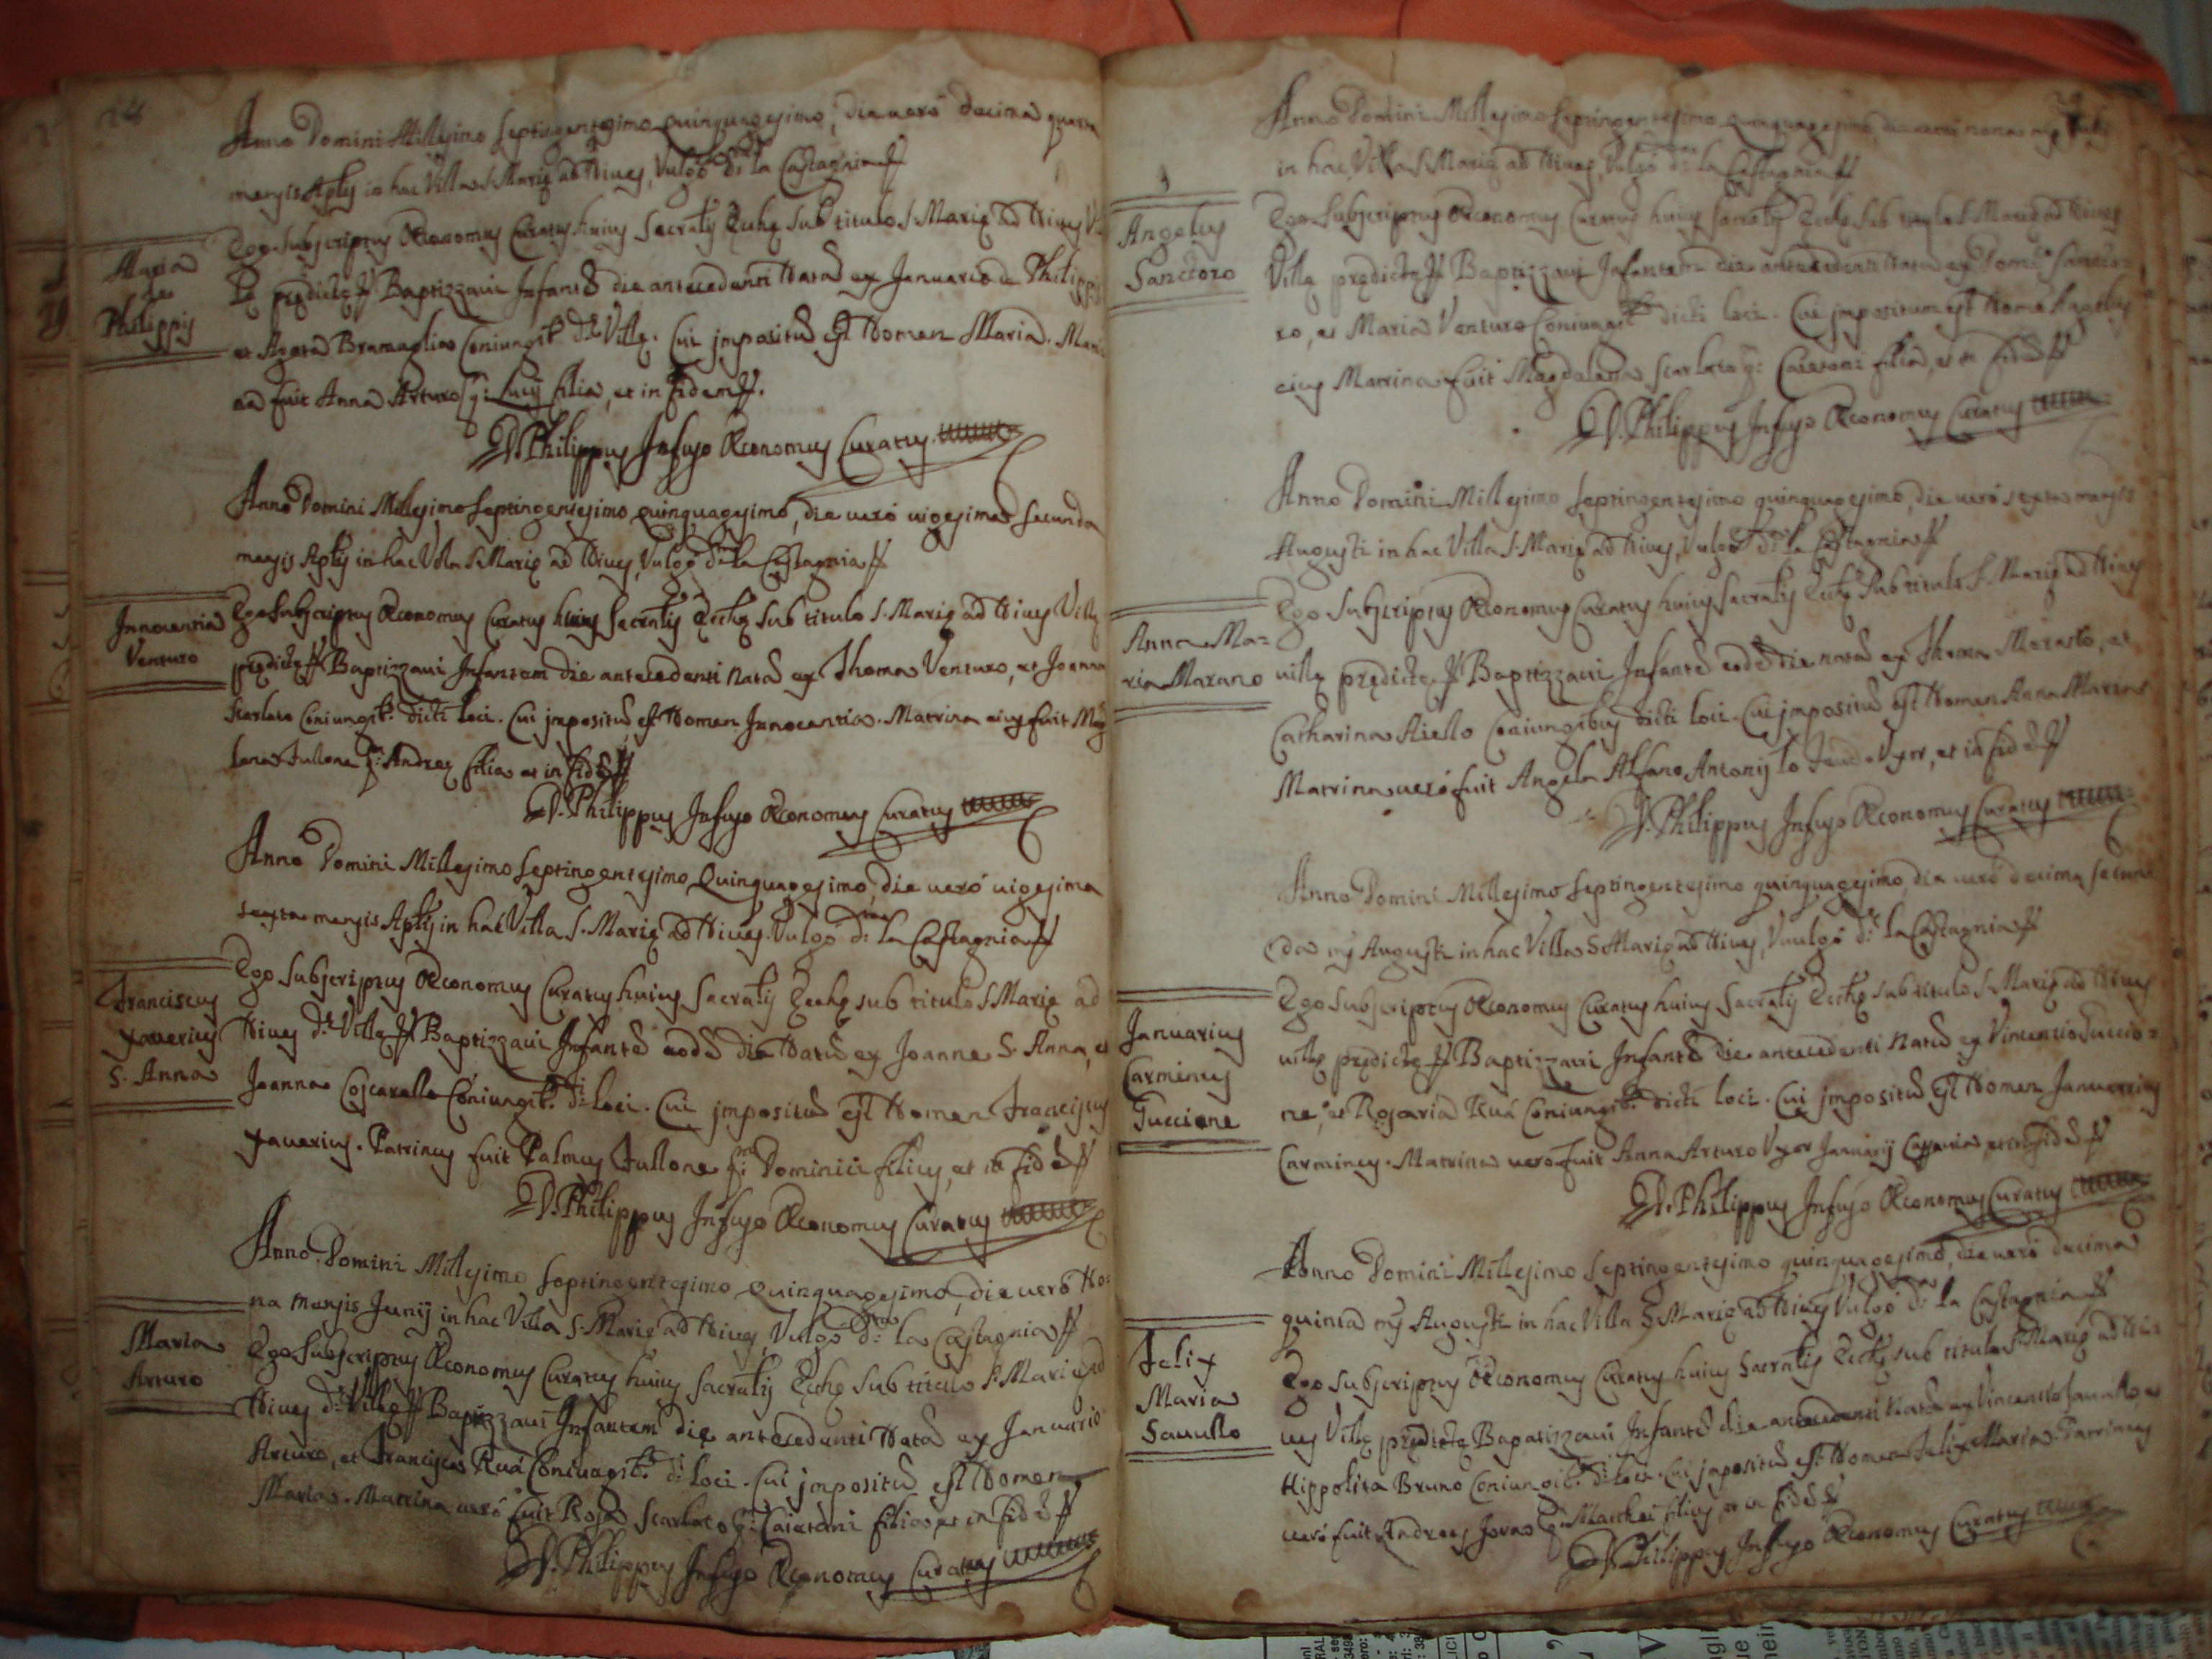 24
Anno Domini Millesimo Septingentesimo Quinquagesimo, die verò decima quarta
mensis Aplis in hac Villa S. Marię ad Nives, Vulgò d: la Castagnia
Maria
de
Philippis
Ego Subscriptus Œconomus Curatus huius Sacralis Ecclę sub titulo S. Marię ad Nives
prędictę Baptizzavi Infantē die antecedenti Natā ex Januario de Philippis
et Agata Bramaglia Coniungib. d. Villę. Cui impositū est Nomen Maria.
na fuit Anna Arturo q: Lucij filia, et in fidem
D. Philippus Infuso Œconomus Curatus
Anno Domini Millesimo Septingentesimo, quinquagesimo, die verò vigesima secunda
mensis Aplis in hac Villa S. Marię ad Nives, Vulgò d: la Castagnia
Innocentia
Venturo
Ego Subscriptus Œconomus Curatus huius Sacralis Ecclę sub titulo S. Marię ad Nives Villę
prędictę Baptizzavi Infantem die antecedenti natā ex Thoma Venturo, et Joanna
Scarlato Coniungib. dicti loci. Cui impositū est Nomen Innocentia. Matrina eius fuit Mag
lena Fullone q: Andreę filia et in fidē
D. Philippus Infuso Œconomus Curatus
Anno Domini Millesimo Septingentesimo Quinquagesimo, die verò vigesima
sexta mensis Aplis in hac Villa S. Marię ad Nives. Vulgò d: la Castagnia
Franciscus
Xaverius
S. Anna
Ego Subscriptus Œconomus Curatus huius Sacralis Ecclę sub titulo S. Marię ad
Nives d. Villę Baptizzavi Infantē eodē die Natū ex Joanne S. Anna, et
Joanna Coscarella Coniungib. d: loci. Cui impositū est Nomen Franciscus
Xaverius. Patrinus fuit Palmus Fullone q: Dominici filius, et in fidē
D. Philippus Infuso Œconomus Curatus
Anno Domini Millesimo Septingentesimo Quinquagesimo, die verò No-
na mensis Junij in hac Villa S. Marię ad Nives, Vulgò d: la Castagnia
Maria
Arturo
Ego Subscriptus Œconomus Curatus huius Sacralis Ecclę sub titulo S. Marię ad
Nives d. Villę Baptizzavi Infantem die antecedenti Natā ex Januario
Arturo, et Francisca Ruá Coniungib. d: loci. Cui impositū est Nomen
Maria. Matrina verò fuit Rosa Scarlato q: Caietani filia et in fidē
D. Philippus Infuso Œconomus Curatus
Anno Domini Millesimo Septingentesimo Quinquagesimo, die verò nona
in hac Villa S. Marię ad Nives, Vulgò d: la Castagnia
Angelus
Sanctoro
Ego Subscriptus Œconomus Curatus huius Sacralis Ecclę sub titulo S. Marię ad Nives
Villę prędictę Baptizzavi Infantem die antecedenti Natū ex Dom:
ro, et Maria Venturo Coniungib. dicti loci. Cui impositum est Nomē Angelus
eius Matrina fuit Magdalena Scarlato q: Caietani filia, et in fidē
D. Philippus Infuso Œconomus Curatus
Anno Domini Millesimo Septingentesimo quinquagesimo, die verò sexta mensis
Augusti in hac Villa S. Marię ad Nives, Vulgò d: la Castagnia
Anna Ma=
ria Marano
Ego Subscriptus Œconomus Curatus huius Sacralis Ecclę sub titulo S. Marię ad Nives
villę prędictę Baptizzavi Infantē eodē die natā ex Thoma, et
Catharina Aiello Coniungibus dicti loci. Cui impositū est Nomen Anna Maria
Matrina verò fuit Angela Alfano Antonij lo Uxor, et in fidē
D. Philippus Infuso Œconomus Curatus
Anno Domini Millesimo Septingentesimo quinquagesimo, die verò decima secun
da mēs Augusti in hac Villa S. Marię ad Nives, Vulgò d: la Castagnia
Januarius
Carminus
Guccione
Ego Subscriptus Œconomus Curatus huius Sacralis Ecclę sub titulo S. Marię ad Nives
villę prędictę Baptizzavi Infantē die antecedenti Natū ex Vincentio Guccio=
ne, et Rosaria Ruá Coniungib. dicti loci. Cui impositū est Nomen Januarius
Carminus. Matrina verò fuit Anna Arturo Uxor Januarij et in fidē
D. Philippus Infuso Œconomus Curatus
Anno Domini Millesimo Septingentesimo quinquagesimo, die verò decima
quinta mēs Augusti in hac Villa S. Marię ad Nives Vulgò d: la Castagnia
Felix
Maria
Savullo
Ego Subscriptus Œconomus Curatus huius Sacralis Ecclę sub titulo S. Marię ad Ni
ves Villę prędictę Bapatizzavi Infantē die antecedenti Natū ex Vincentio Savullo et
Hippolita Bruno Coniungib. d: loci. Cui impositū est Nomen Felix Maria. Patrinus
verò fuit Andreas q: Matthei filius et in fidē
D. Philippus Infuso Œconomus Curatus